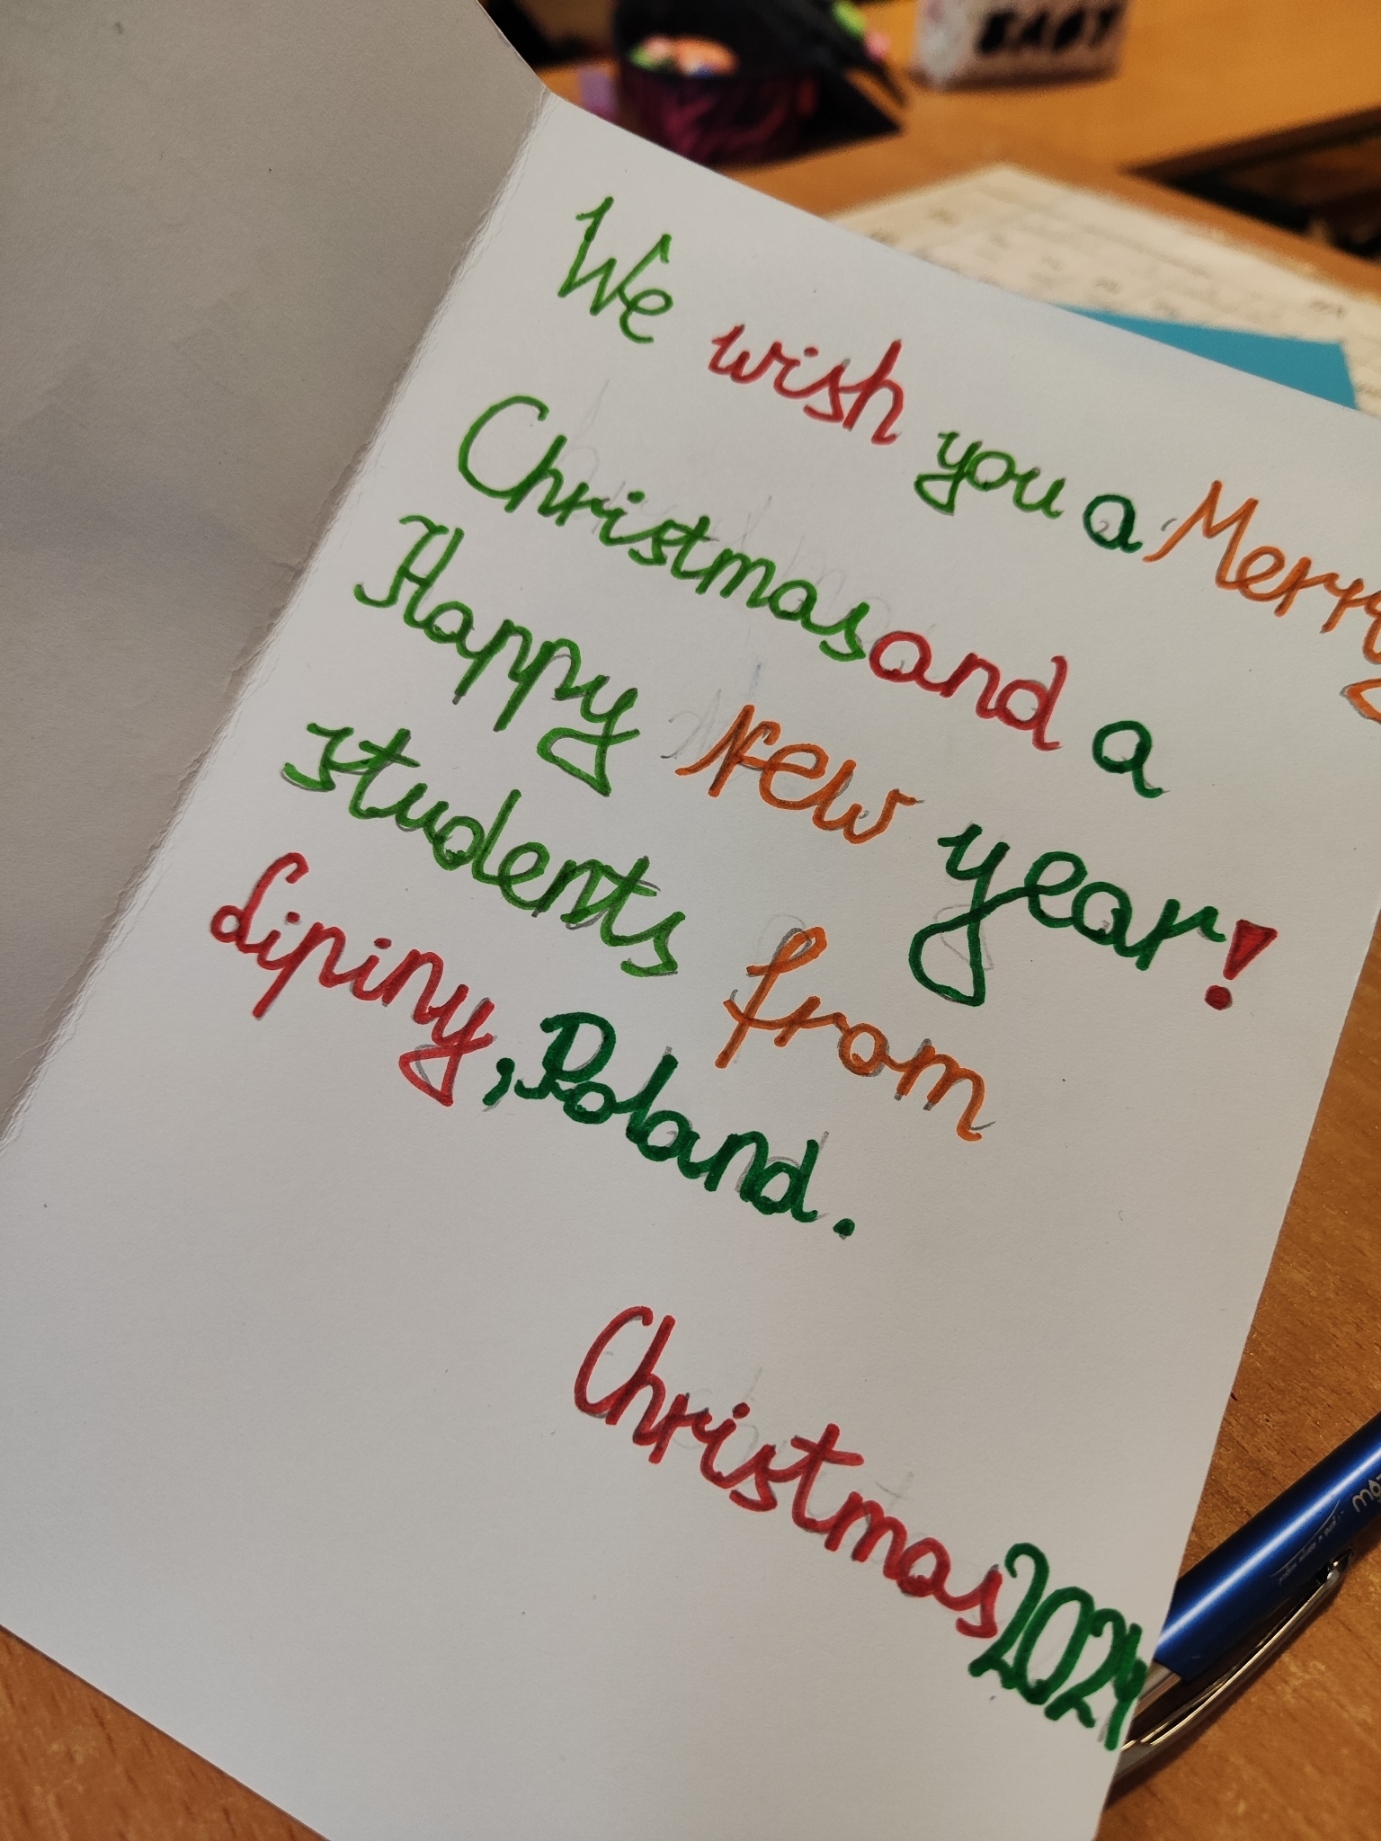 We wish you a Merry
Christmas and a
Happy New year!
students from
Lipiny, Roland.
Christmas 2024